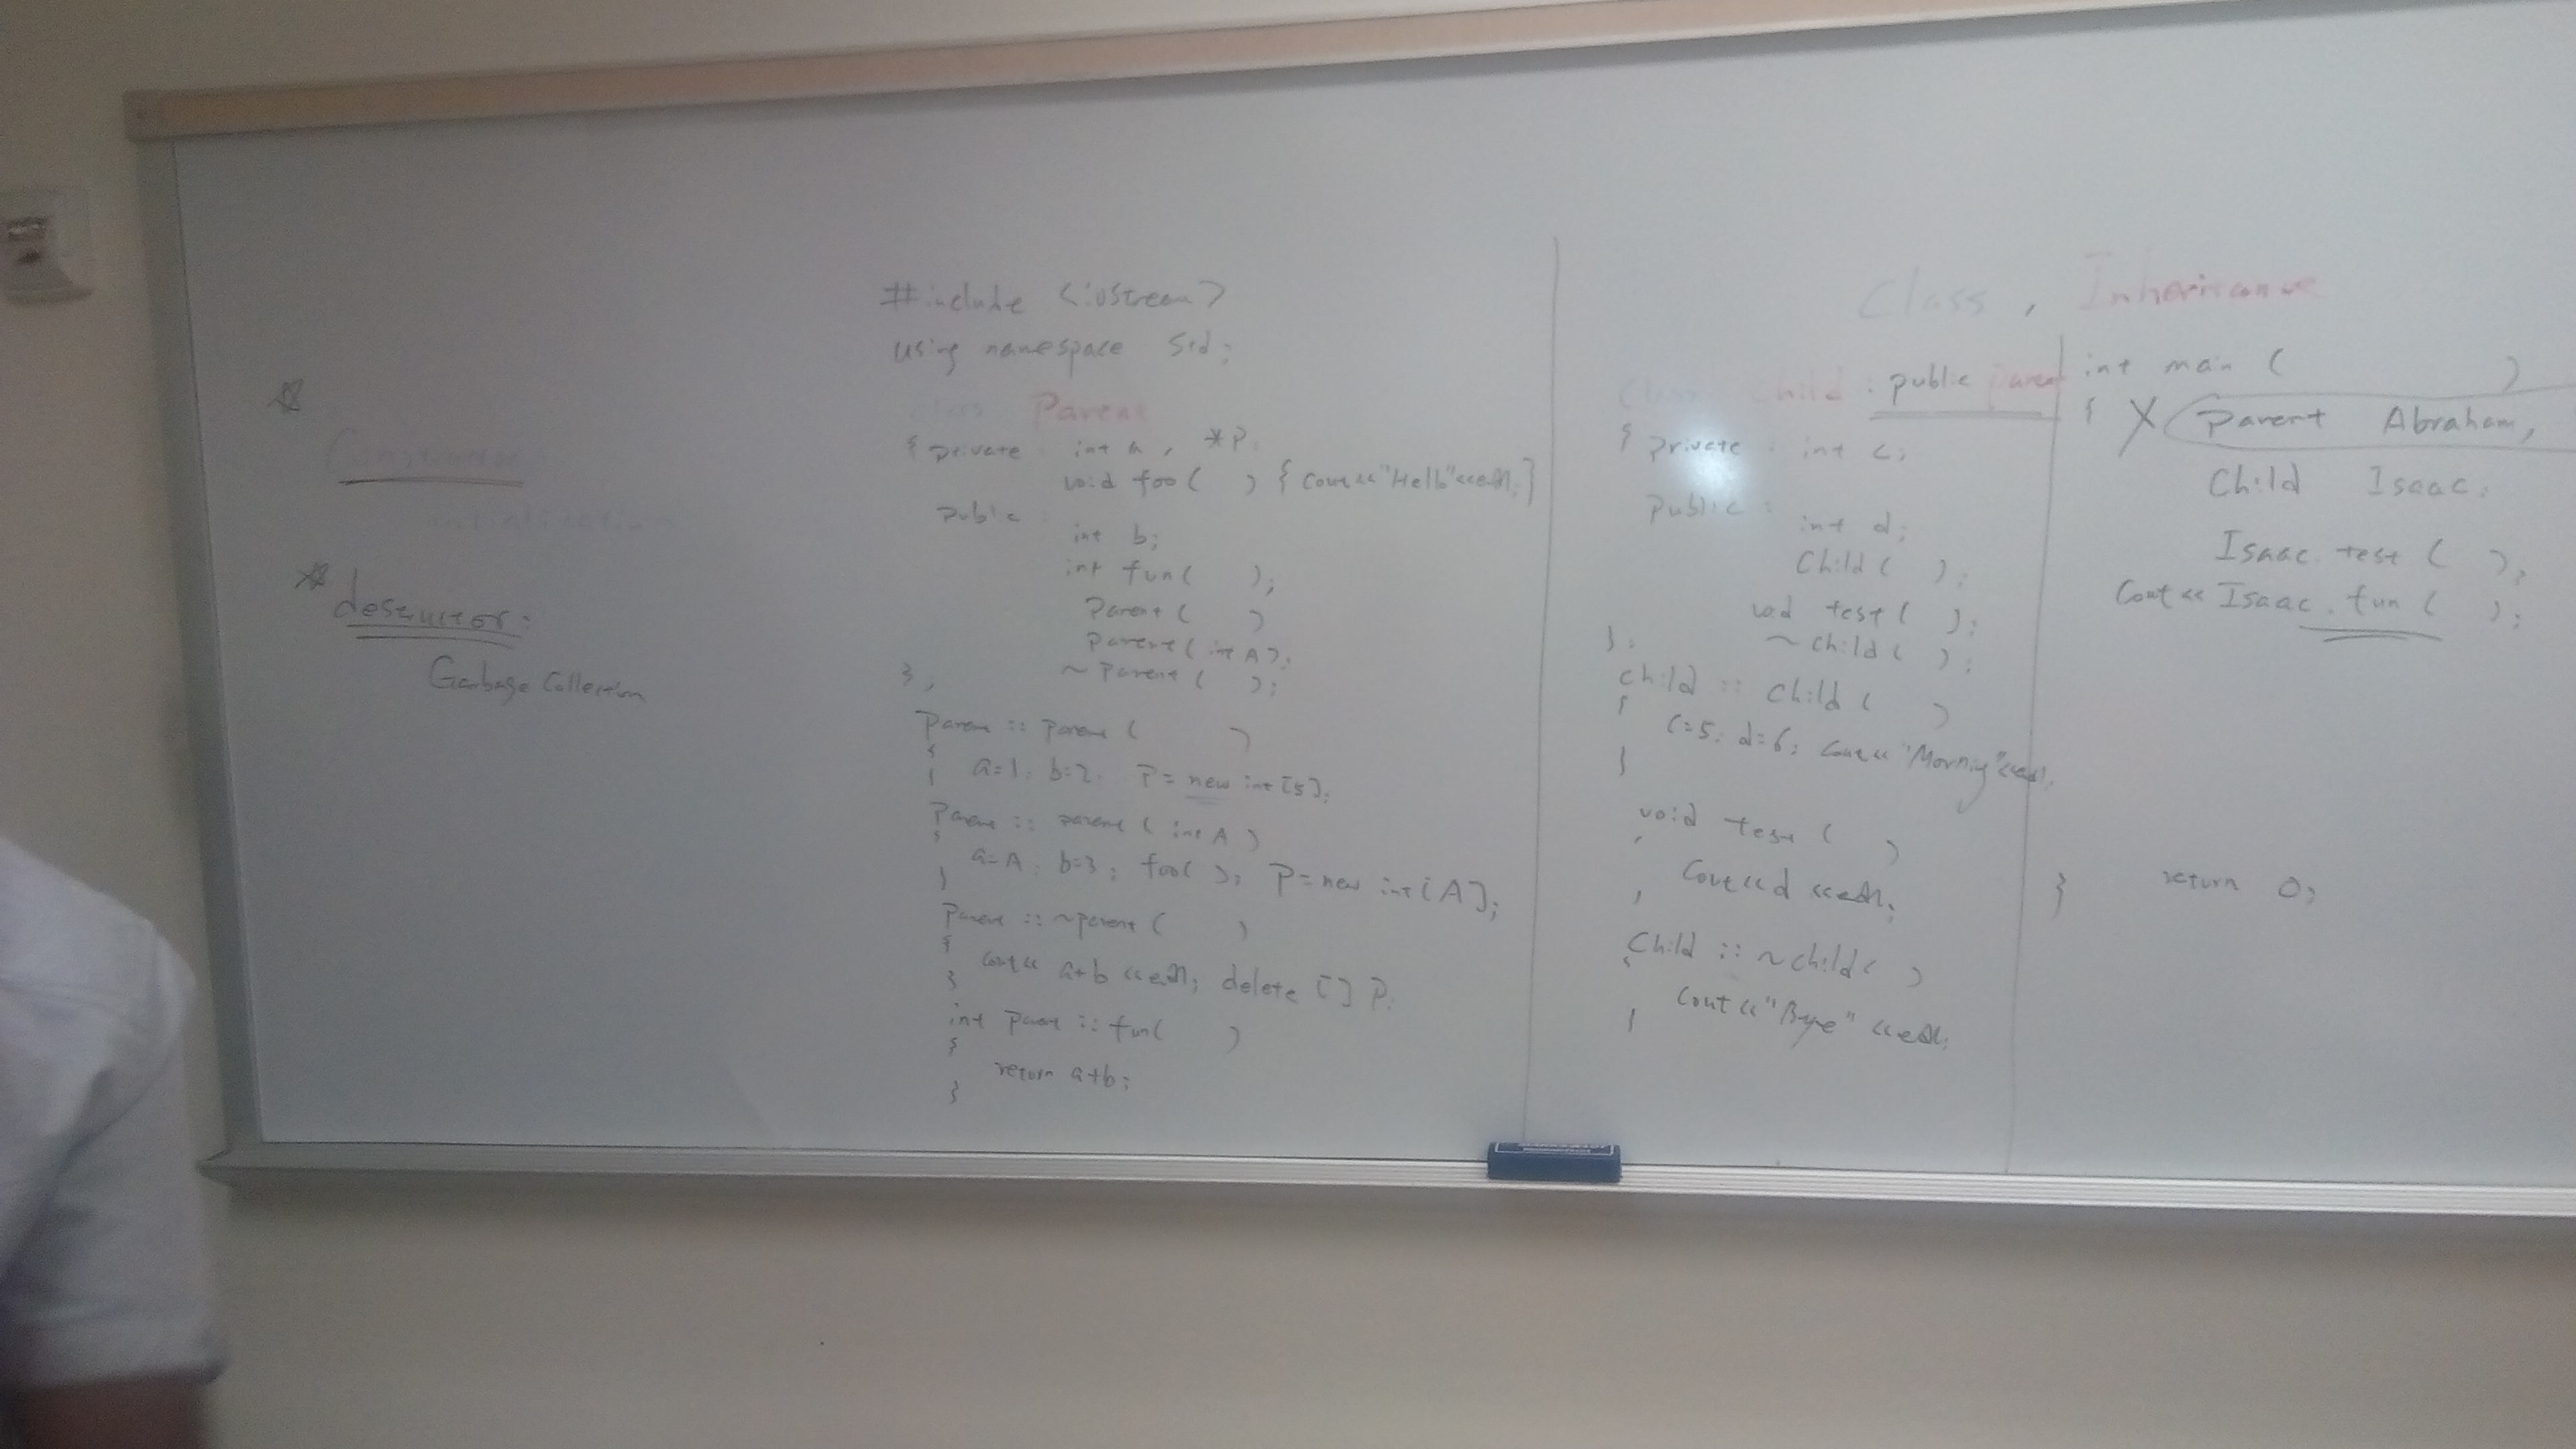 ☆
Constructor
initialization
☆ destructor:
Garbage Collection
#include <iostream>
using namespace std;
class Parent
{ private : int a, *P;
void foo( ) { cout<<"Hello"<<endl; }
public :
int b;
int fun( );
Parent( )
Parent(int A);
~Parent( );
};
Parent :: Parent ( )
{
a=1; b=2; P = new int[5];
}
Parent :: Parent ( int A )
{
a=A; b=3; foo( ); P=new int[A];
}
Parent :: ~Parent ( )
{
cout<< a+b <<endl; delete [] P;
}
int Parent :: fun( )
{
return a+b;
}
Class, Inheritance
class Child : public Parent
{ private : int c;
public :
int d;
Child( );
void test( );
~child( );
};
Child :: Child( )
{
c=5; d=6; cout<<"Morning"<<endl;
}
void test( )
cout<<d<<endl;
Child :: ~child( )
{
cout<<"Bye"<<endl;
}
int main ( )
{ X Parent Abraham,
Child Isaac;
Isaac.test( );
cout<< Isaac.fun( );
return 0;
}